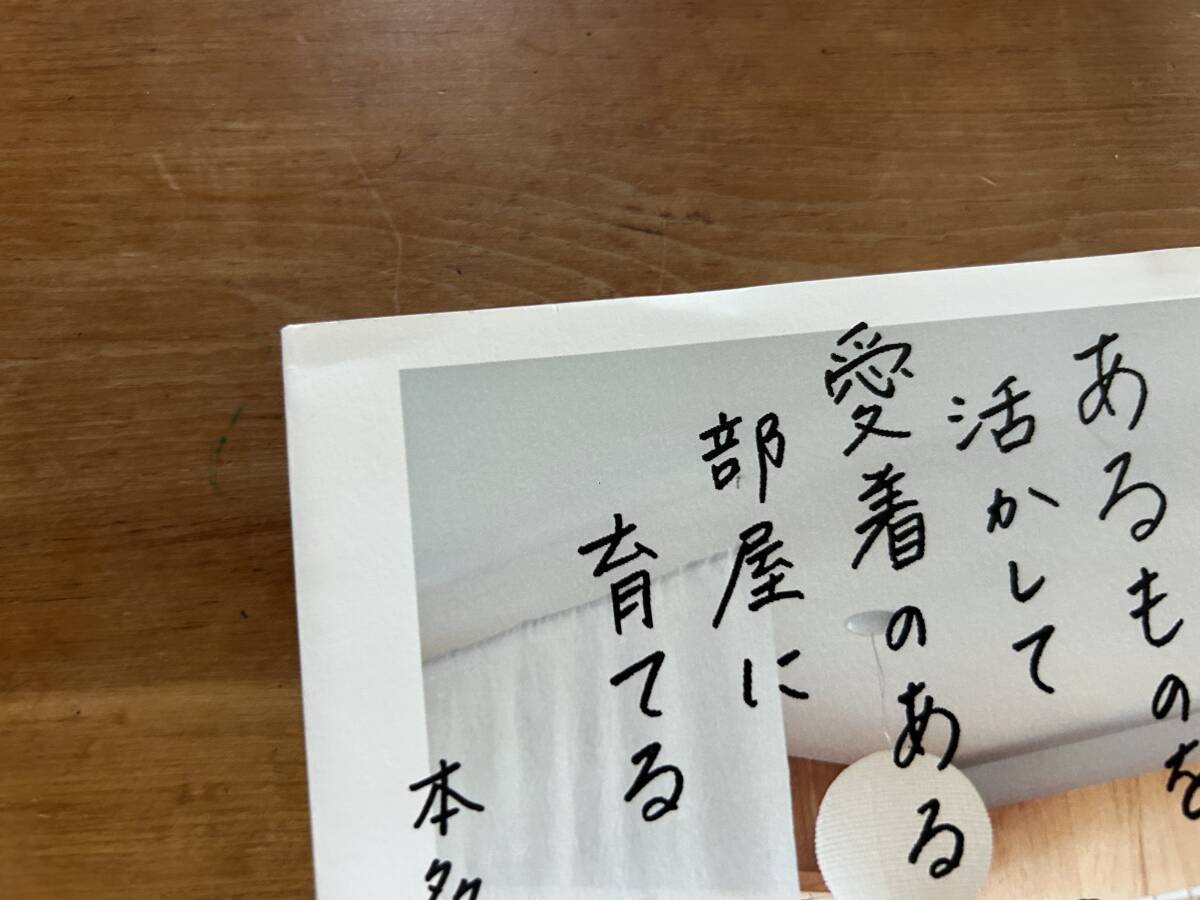 あるものを
活かして
愛着のある
部屋に
育てる
本多